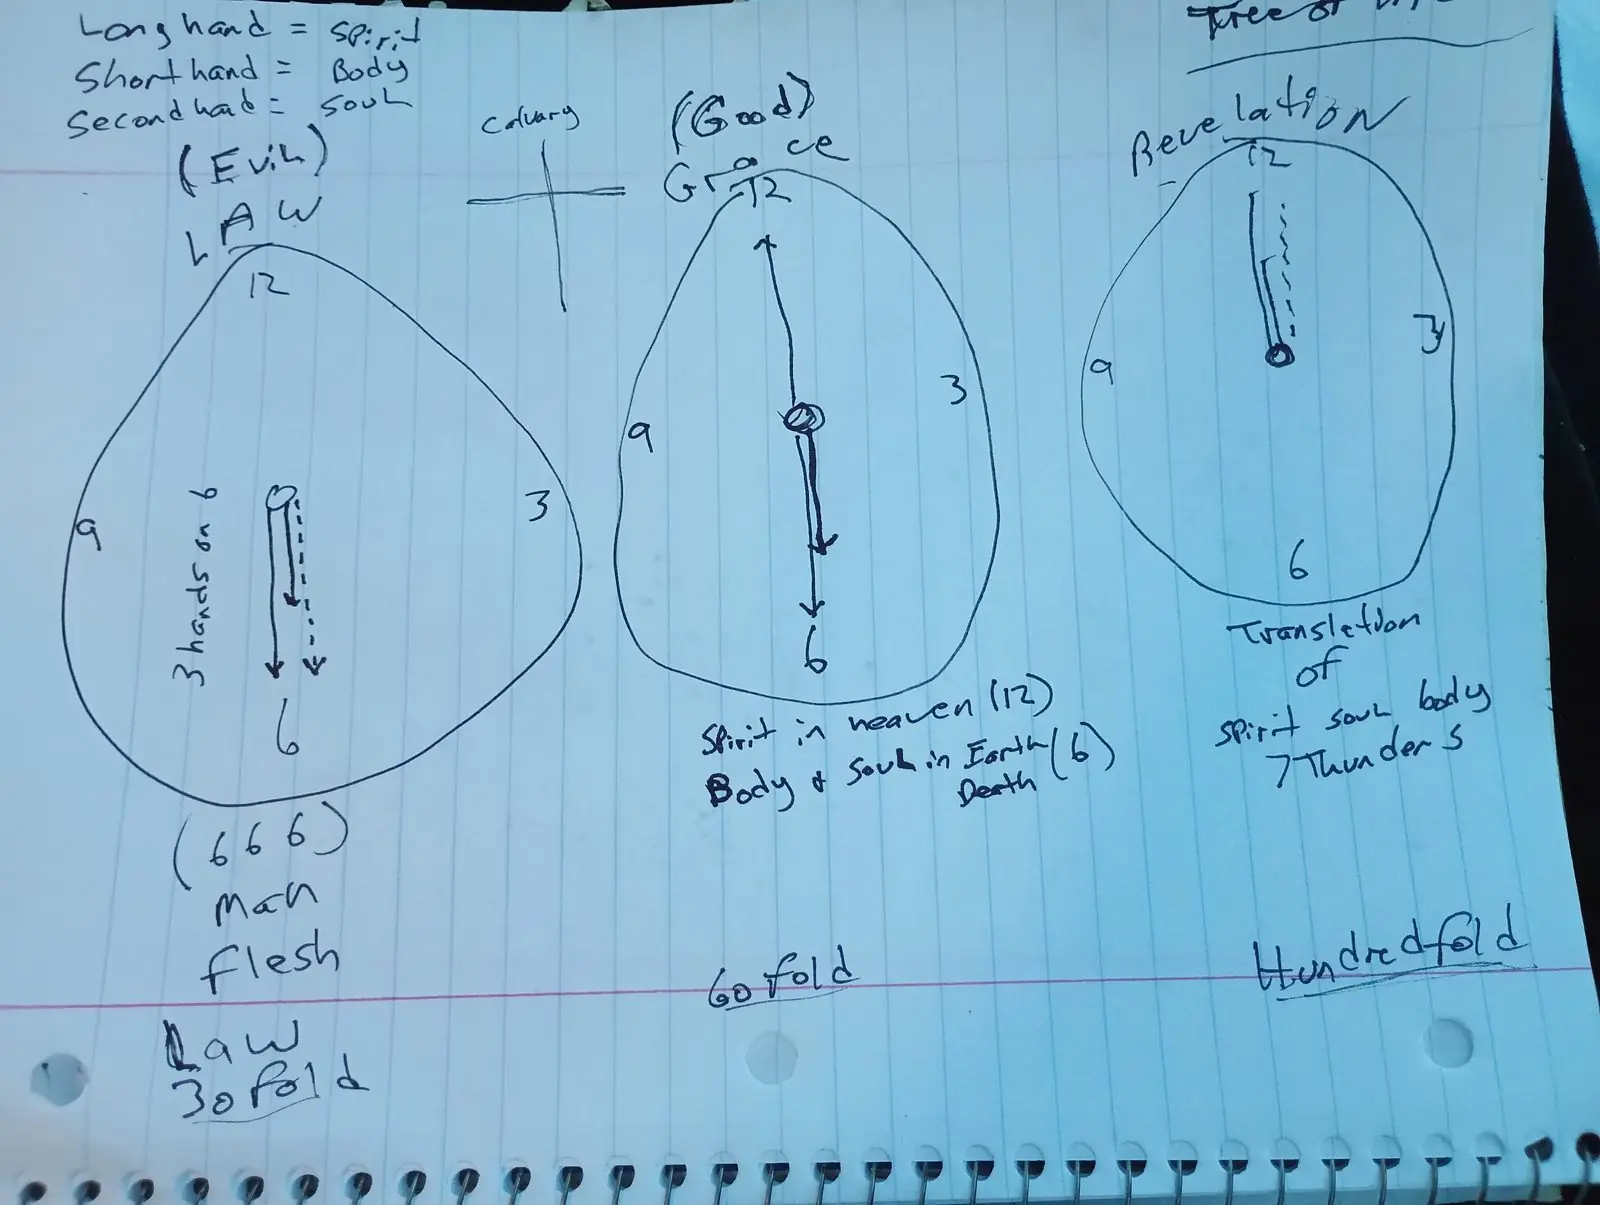 Long hand = Spirit
Short hand = Body
Second hand = Soul
(Evil)
LAW
12
3
6
9
3 hands on 6
(666)
Man
flesh
Law
30 fold
Calvary
(Good)
Grace
12
3
6
9
Spirit in heaven (12)
Body & Soul in Earth (6)
Death
60 fold
Tree of
Revelation
12
3
6
9
Translation
of
Spirit soul body
7 Thunders
Hundredfold